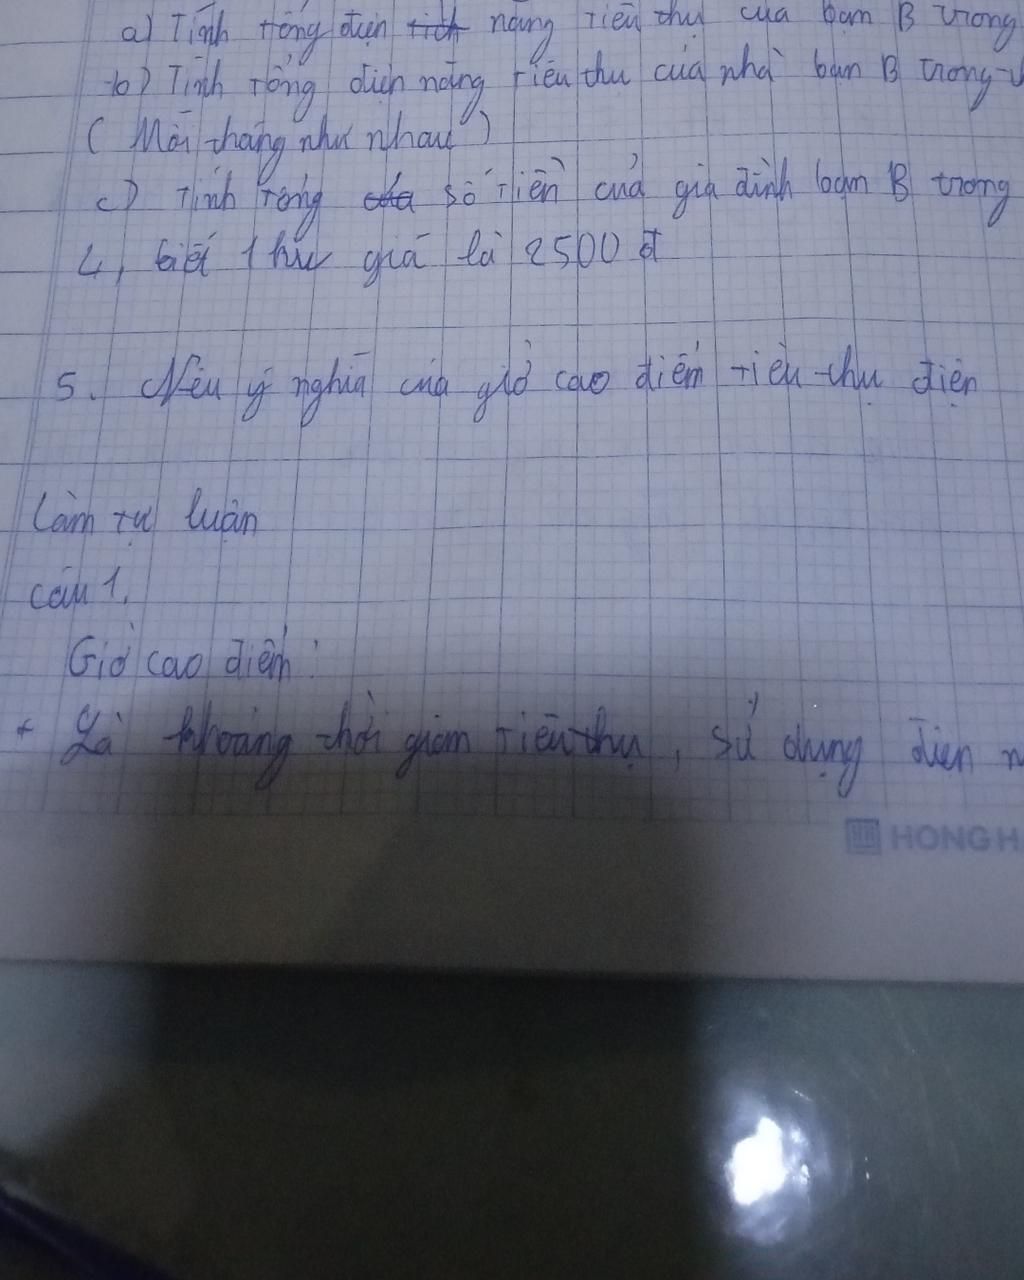 a) Tính tổng điện năng tiêu thụ của bạn B trong
b) Tính tổng điện năng tiêu thụ của nhà bạn B trong
( Mỗi tháng như nhau )
c) Tính tổng số tiền của gia đình bạn B trong
4, biết 1 giá là 2500 đ
5. Nêu ý nghĩa của giờ cao điểm tiêu thụ điện
Làm tự luận
câu 1.
Giờ cao điểm:
+ Là khoảng thời gian tiêu thụ, sử dụng điện n
HONG H